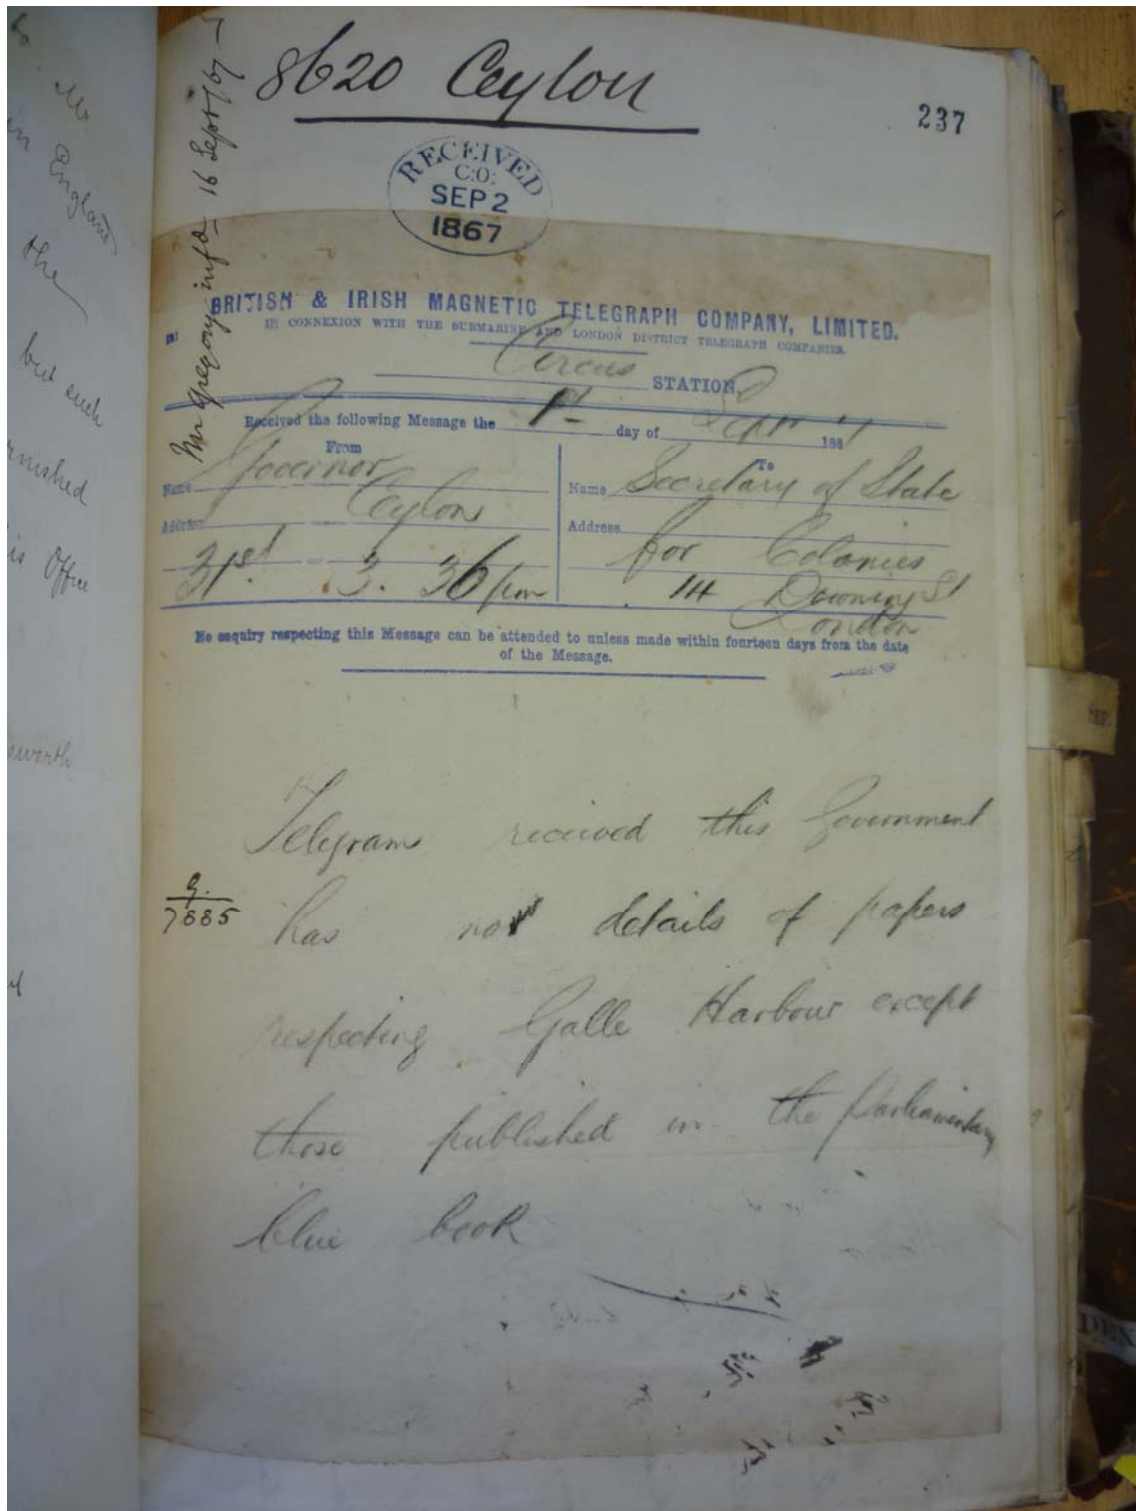 8620 Ceylon
237
RECEIVED
C.O.
SEP 2
1867
Mr Gregory infd 16 Sept/67
BRITISH & IRISH MAGNETIC TELEGRAPH COMPANY, LIMITED.
IN CONNEXION WITH THE SUBMARINE AND LONDON DISTRICT TELEGRAPH COMPANIES.
Circus STATION
Received the following Message the 1st day of Sept 186
From
Name Governor
Address Ceylon
31st 3. 36 pm
To
Name Secretary of State
Address for Colonies
14 Downing St
London
No enquiry respecting this Message can be attended to unless made within fourteen days from the date
of the Message.
Telegrams received this Government
7885
has not details of papers
respecting Galle Harbour except
those published in the Parliamentary
blue book
in England
the
but such
rnished
is Office
sworth
SEP.
DEX